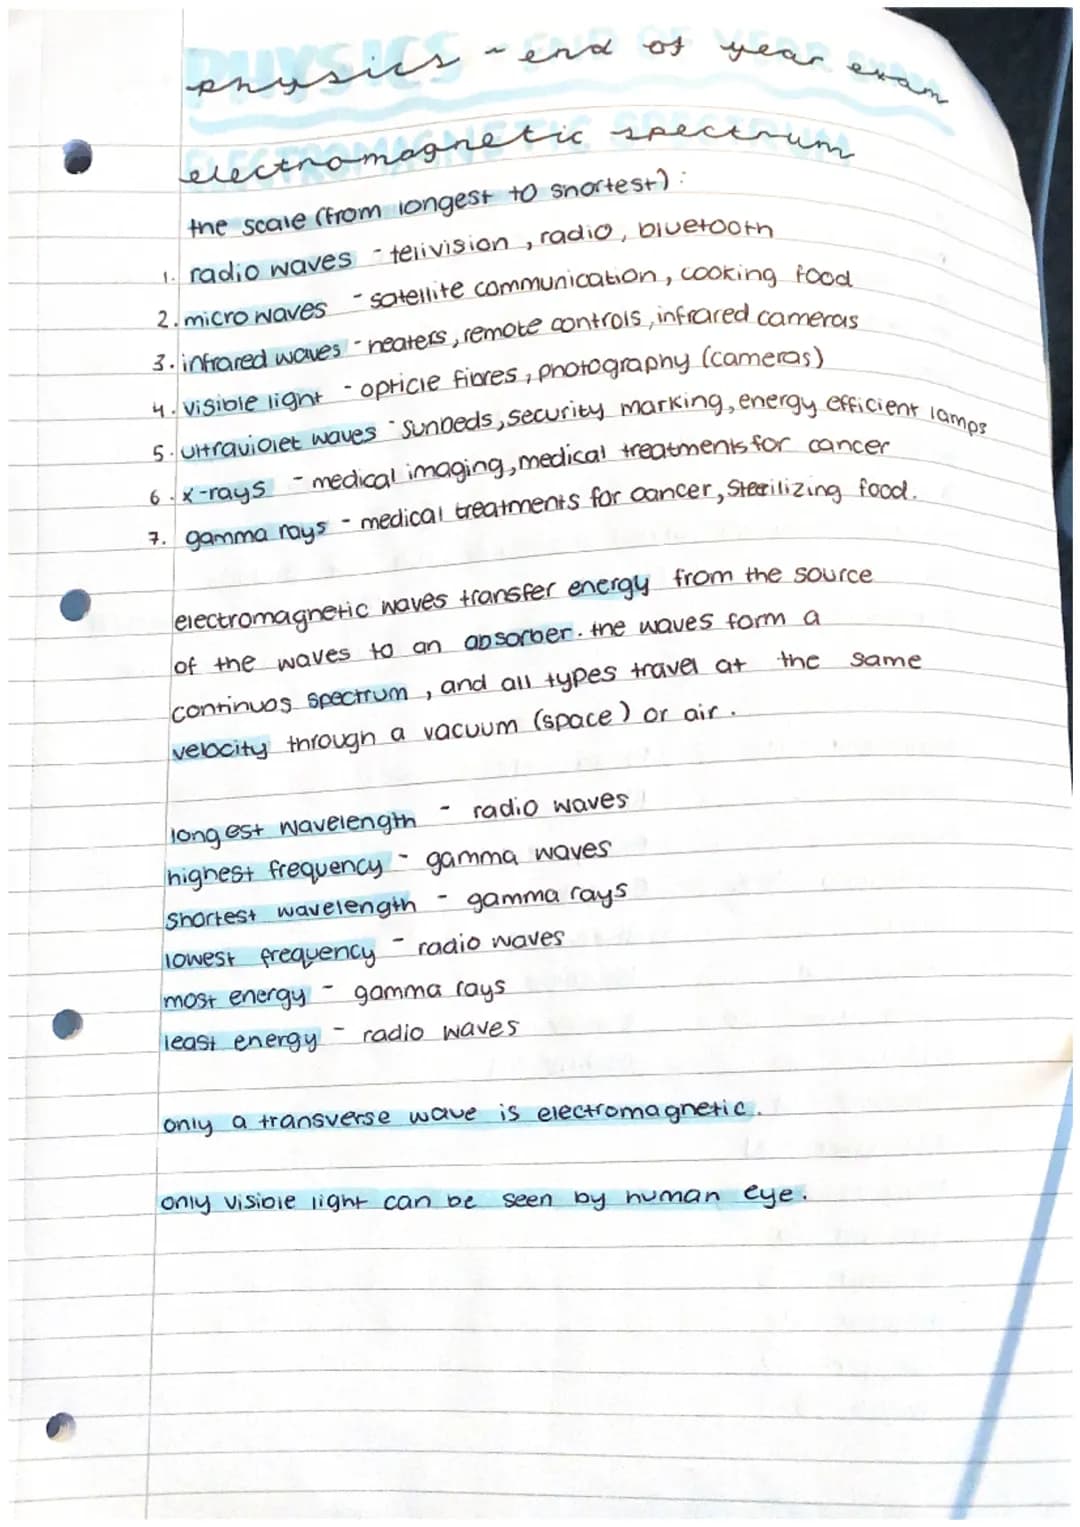 PHYSICS - END OF YEAR EXAM
physics - end of year exam
ELECTROMAGNETIC SPECTRUM
electromagnetic spectrum
the scale (from longest to shortest):
1. radio waves - telivision, radio, bluetooth
2. micro waves - satellite communication, cooking food
3. infrared waves - heaters, remote controls, infrared cameras
4. visible light - opticle fibres, photography (cameras)
5. ultraviolet waves - sunbeds, security marking, energy efficient lamps
6. x-rays - medical imaging, medical treatments for cancer
7. gamma rays - medical treatments for cancer, sterilizing food.
electromagnetic waves transfer energy from the source
of the waves to an absorber. the waves form a
continuos spectrum, and all types travel at the same
velocity through a vacuum (space) or air.
longest wavelength - radio waves
highest frequency - gamma waves
shortest wavelength - gamma rays
lowest frequency - radio waves
most energy - gamma rays
least energy - radio waves
only a transverse wave is electromagnetic.
only visible light can be seen by human eye.